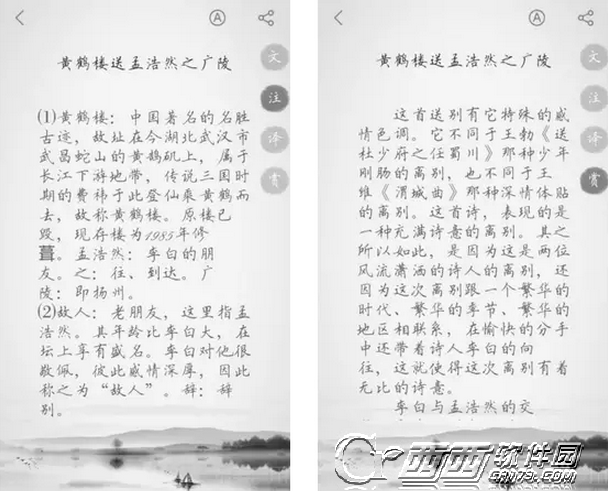 黄鹤楼送孟浩然之广陵
文
注
译
赏
⑴黄鹤楼：中国著名的名胜
古迹，故址在今湖北武汉市
武昌蛇山的黄鹄矶上，属于
长江下游地带，传说三国时
期的费祎于此登仙乘黄鹤而
去，故称黄鹤楼。原楼已
毁，现存楼为1985年修
葺。孟浩然：李白的朋
友。之：往、到达。广
陵：即扬州。
⑵故人：老朋友，这里指孟
浩然。其年龄比李白大，在
坛上享有盛名。李白对他很
敬佩，彼此感情深厚，因此
称之为“故人”。辞：辞
别。
黄鹤楼送孟浩然之广陵
文
注
译
赏
这首送别有它特殊的感
情色调。它不同于王勃《送
杜少府之任蜀川》那种少年
刚肠的离别，也不同于王
维《渭城曲》那种深情体贴
的离别。这首诗，表现的是
一种充满诗意的离别。其之
所以如此，是因为这是两位
风流潇洒的诗人的离别，还
因为这次离别跟一个繁华的
时代、繁华的季节、繁华的
地区相联系，在愉快的分手
中还带着诗人李白的向
往，这就使得这次离别有着
无比的诗意。
李白与孟浩然的交
西西软件园
CR173.COM